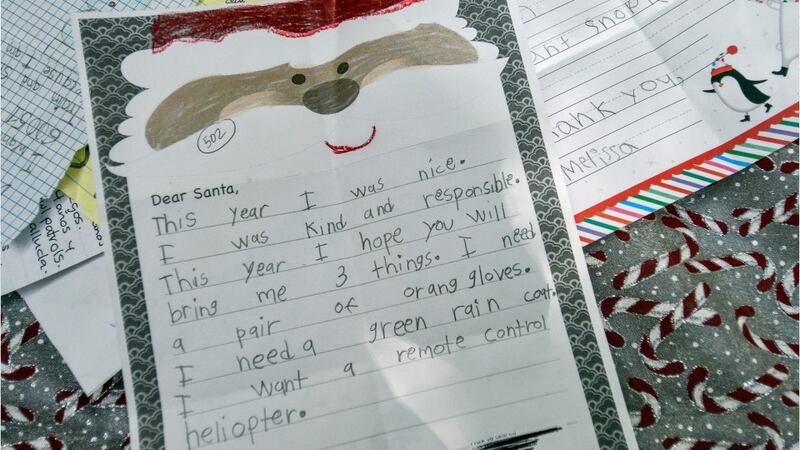 502
Dear Santa,
This year I was nice.
I was kind and responsible.
This year I hope you will
bring me 3 things. I need
a pair of orang gloves.
I need a green rain coat.
I want a remote control
heliopter.
Thank you,
Melissa
años y
patrols.